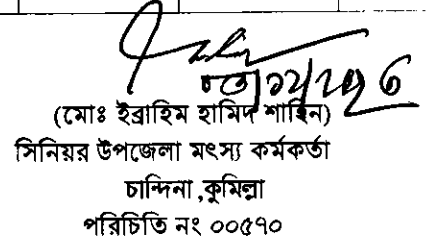 (মোঃ ইব্রাহিম হামিদ শাহিন)
সিনিয়র উপজেলা মৎস্য কর্মকর্তা
চান্দিনা ,কুমিল্লা
পরিচিতি নং ০০৫৭০